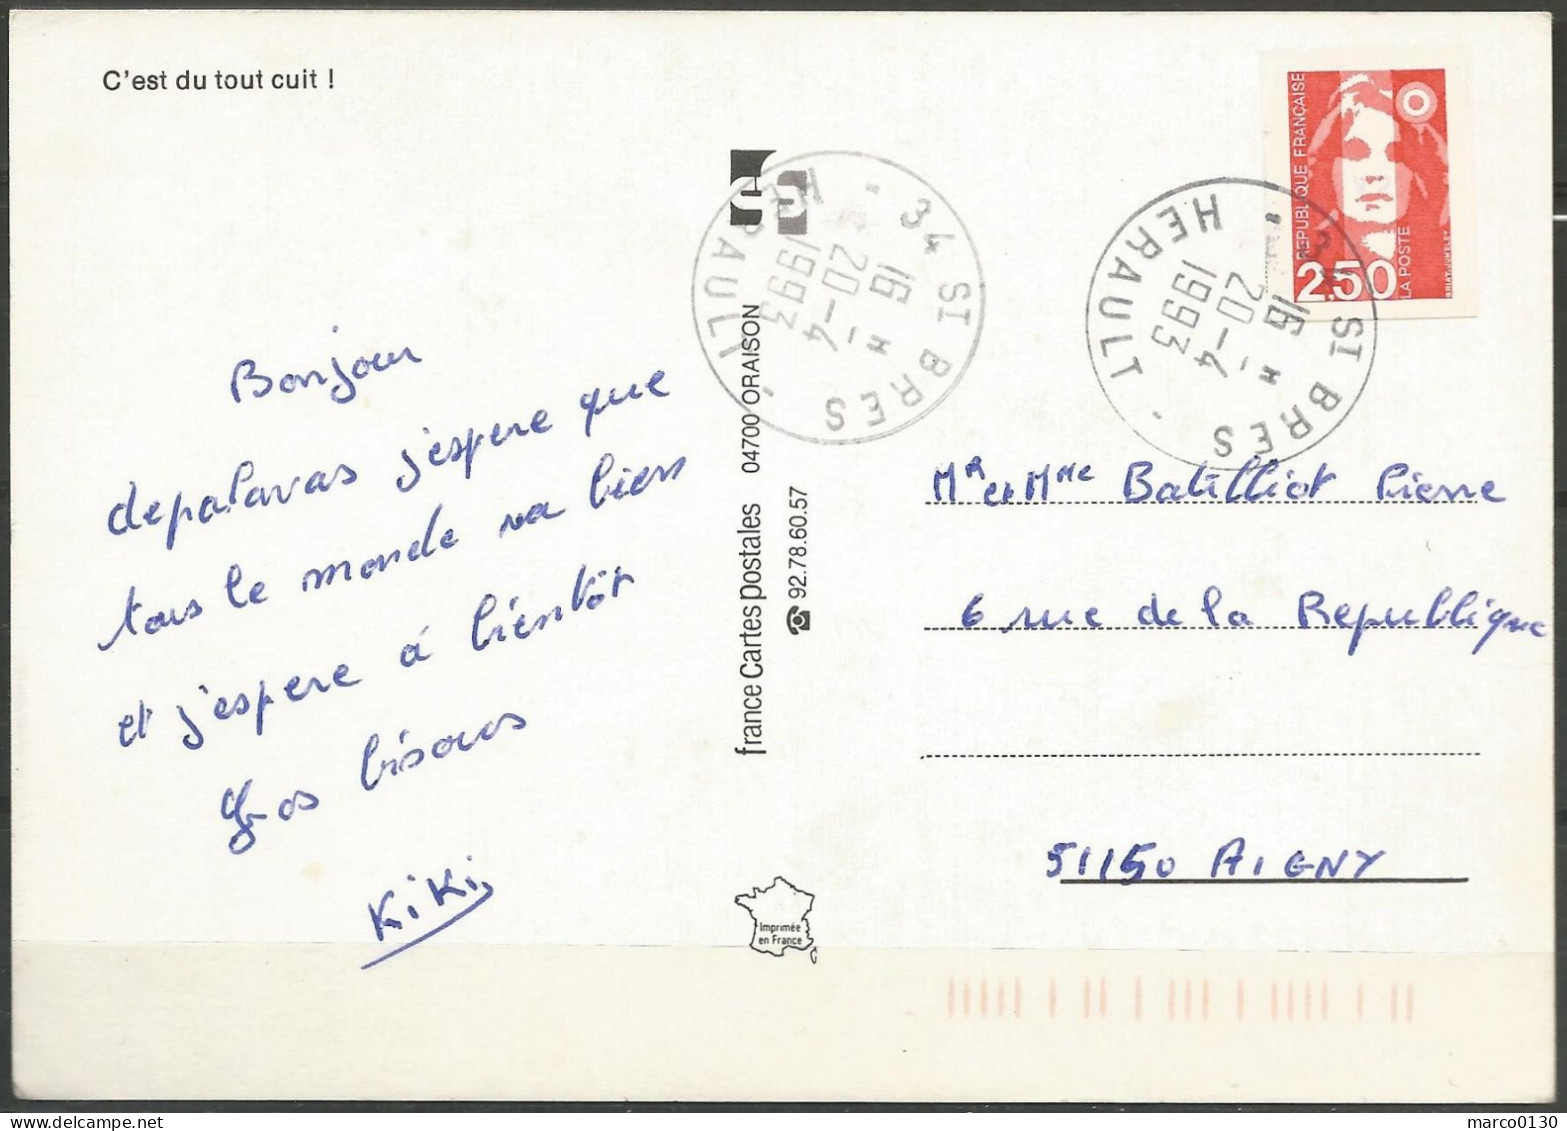 C'est du tout cuit !
Bonjour
depalavas j'espere que
tous le monde va bien
et j'espere á bientôt
Gros bisous
KiKi
france Cartes postales 04700 ORAISON
☎ 92.78.60.57
Imprimée
en France
34 ST BRES
HERAULT
16 H
20-4
1993
34 ST BRES
HERAULT
16 H
20-4
1993
REPUBLIQUE FRANÇAISE
2,50
LA POSTE
BRIAT-JUMELET
Mr et Mme Batilliot Pierre
6 rue de la Republique
51150 AIGNY
marco0130